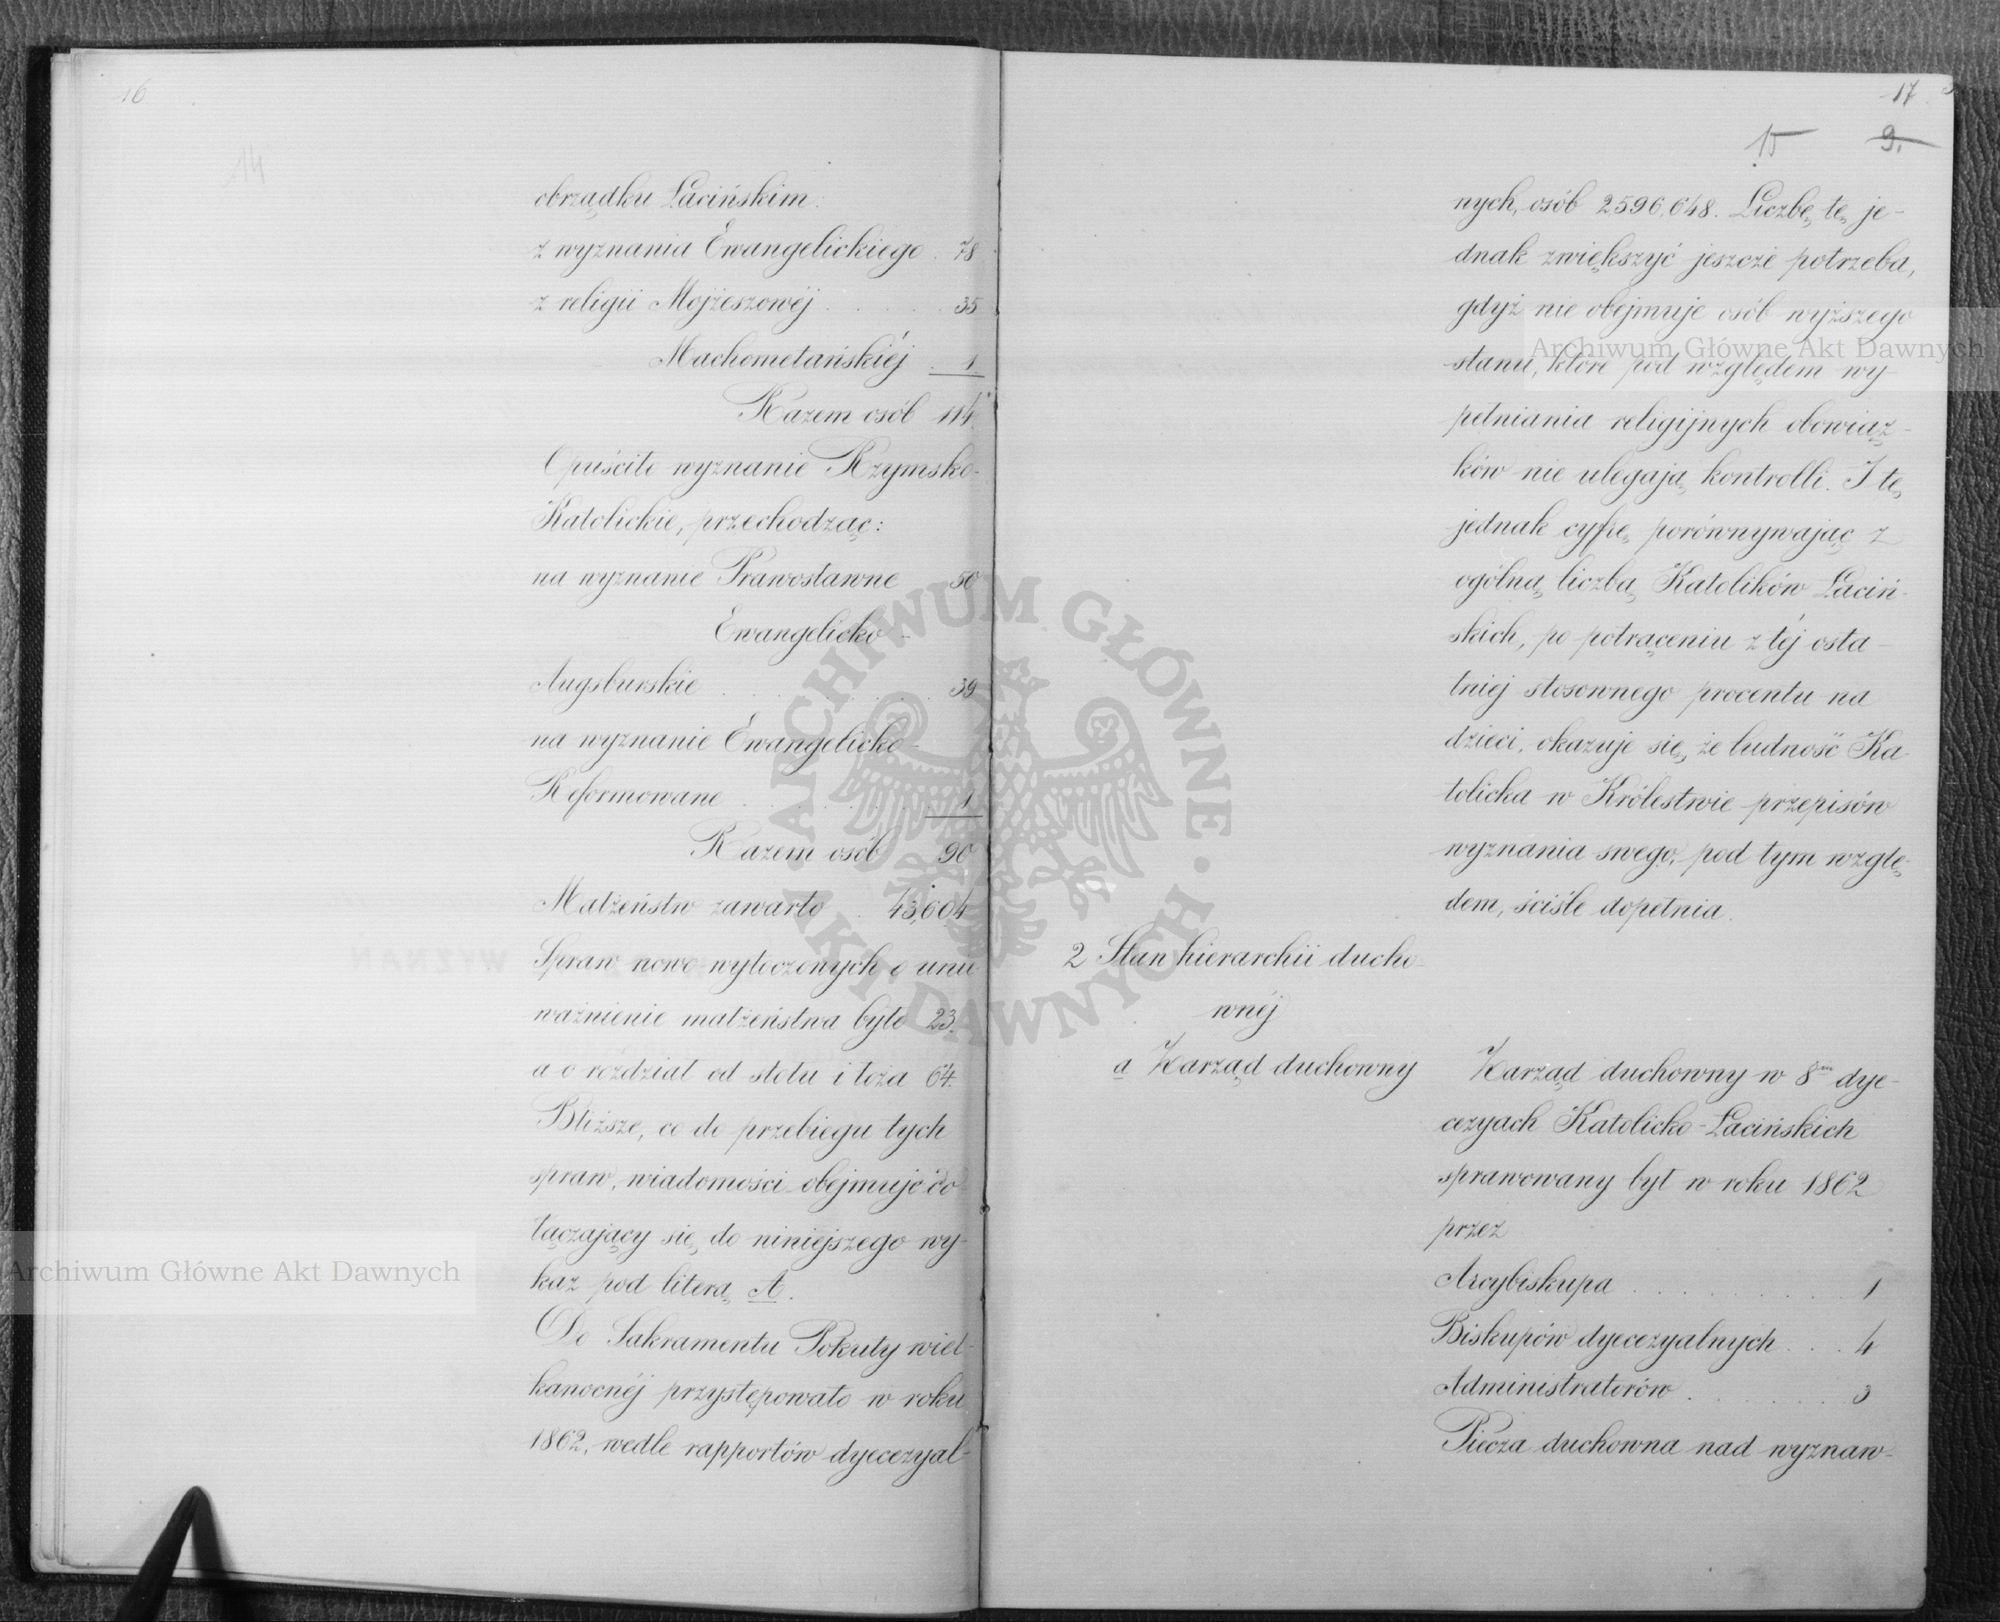 16
14
obrządku Łacińskim.
z wyznania Ewangelickiego . 78
z religii Mojżeszowéj . . . . . 35
Machometańskiéj . 1
Razem osób 114.
Opuściło wyznanie Rzymsko-
Katolickie, przechodząc:
na wyznanie Prawosławne 50
Ewangelicko-
Augsburskie . . . . . . . . 39
na wyznanie Ewangelicko-
Reformowane . . . . . . . 1
Razem osób 90
Małżeństw zawarto 43,604
Spraw nowo wytoczonych o unie
ważnienie małżeństwa było 23.
a o rozdział od stołu i łoża 64.
Bliższe, co do przebiegu tych
spraw, wiadomości obejmuje do-
łączający się do niniejszego wy-
kaz pod literą A.
Do Sakramentu Pokuty wiel-
kanocnéj przystępowało w roku
1862, wedle rapportów dyecezyal-
17
15 9.
nych, osób 2596,648. Liczbę tę je-
dnak zwiększyć jeszcze potrzeba,
gdyż nie obejmuje osób wyższego
stanu, które pod względem wy-
pełniania religijnych obowiąz-
ków nie ulegają kontrolli. I tę
jednak cyfrę porównywając z
ogólną liczbą Katolików Laciń-
skich, po potrąceniu z téj osta-
tniej stosownego procentu na
dzieci, okazuje się, że ludność Ka-
tolicka w Królestwie przepisów
wyznania swego, pod tym wzglę-
dem, ściśle dopełnia.
2 Stan hierarchii ducho-
wnéj
a Zarząd duchowny
Zarząd duchowny w 8miu dye-
cezyach Katolicko-Łacińskich
sprawowany był w roku 1862
przez
Arcybiskupa . . . . . . . . . . 1
Biskupów dyecezyalnych . . . 4
Administratorów . . . . . . . 3
Piecza duchowna nad wyznaw-
Archiwum Główne Akt Dawnych
Archiwum Główne Akt Dawnych
ARCHIWUM GŁÓWNE · AKT DAWNYCH ·